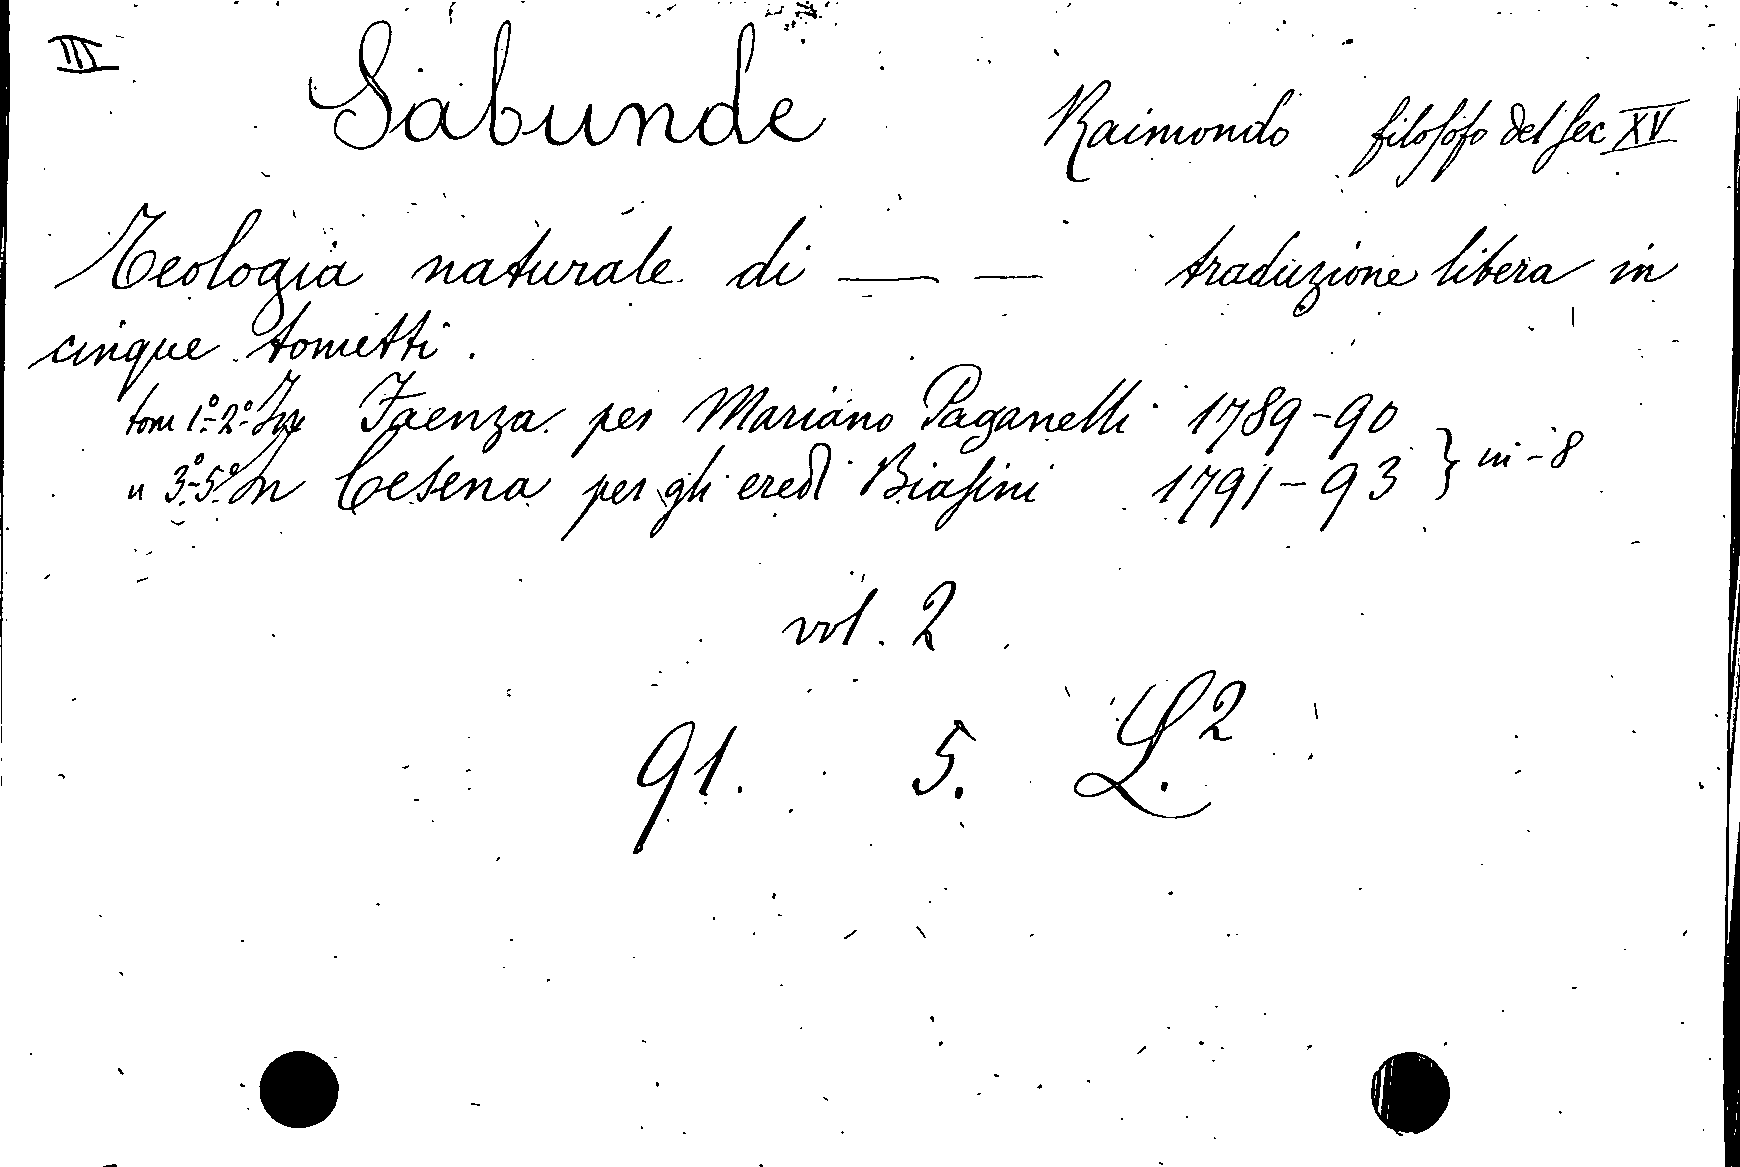 III
Sabunde Raimondo filosofo del sec XV
Teologia naturale di — — traduzione libera in
cinque tometti.
tom 1º-2º In Faenza per Mariano Paganelli 1789-90
" 3º-5º In Cesena per gli eredi Biasini 1791-93 } in-8
vol. 2
91. 5. L.2